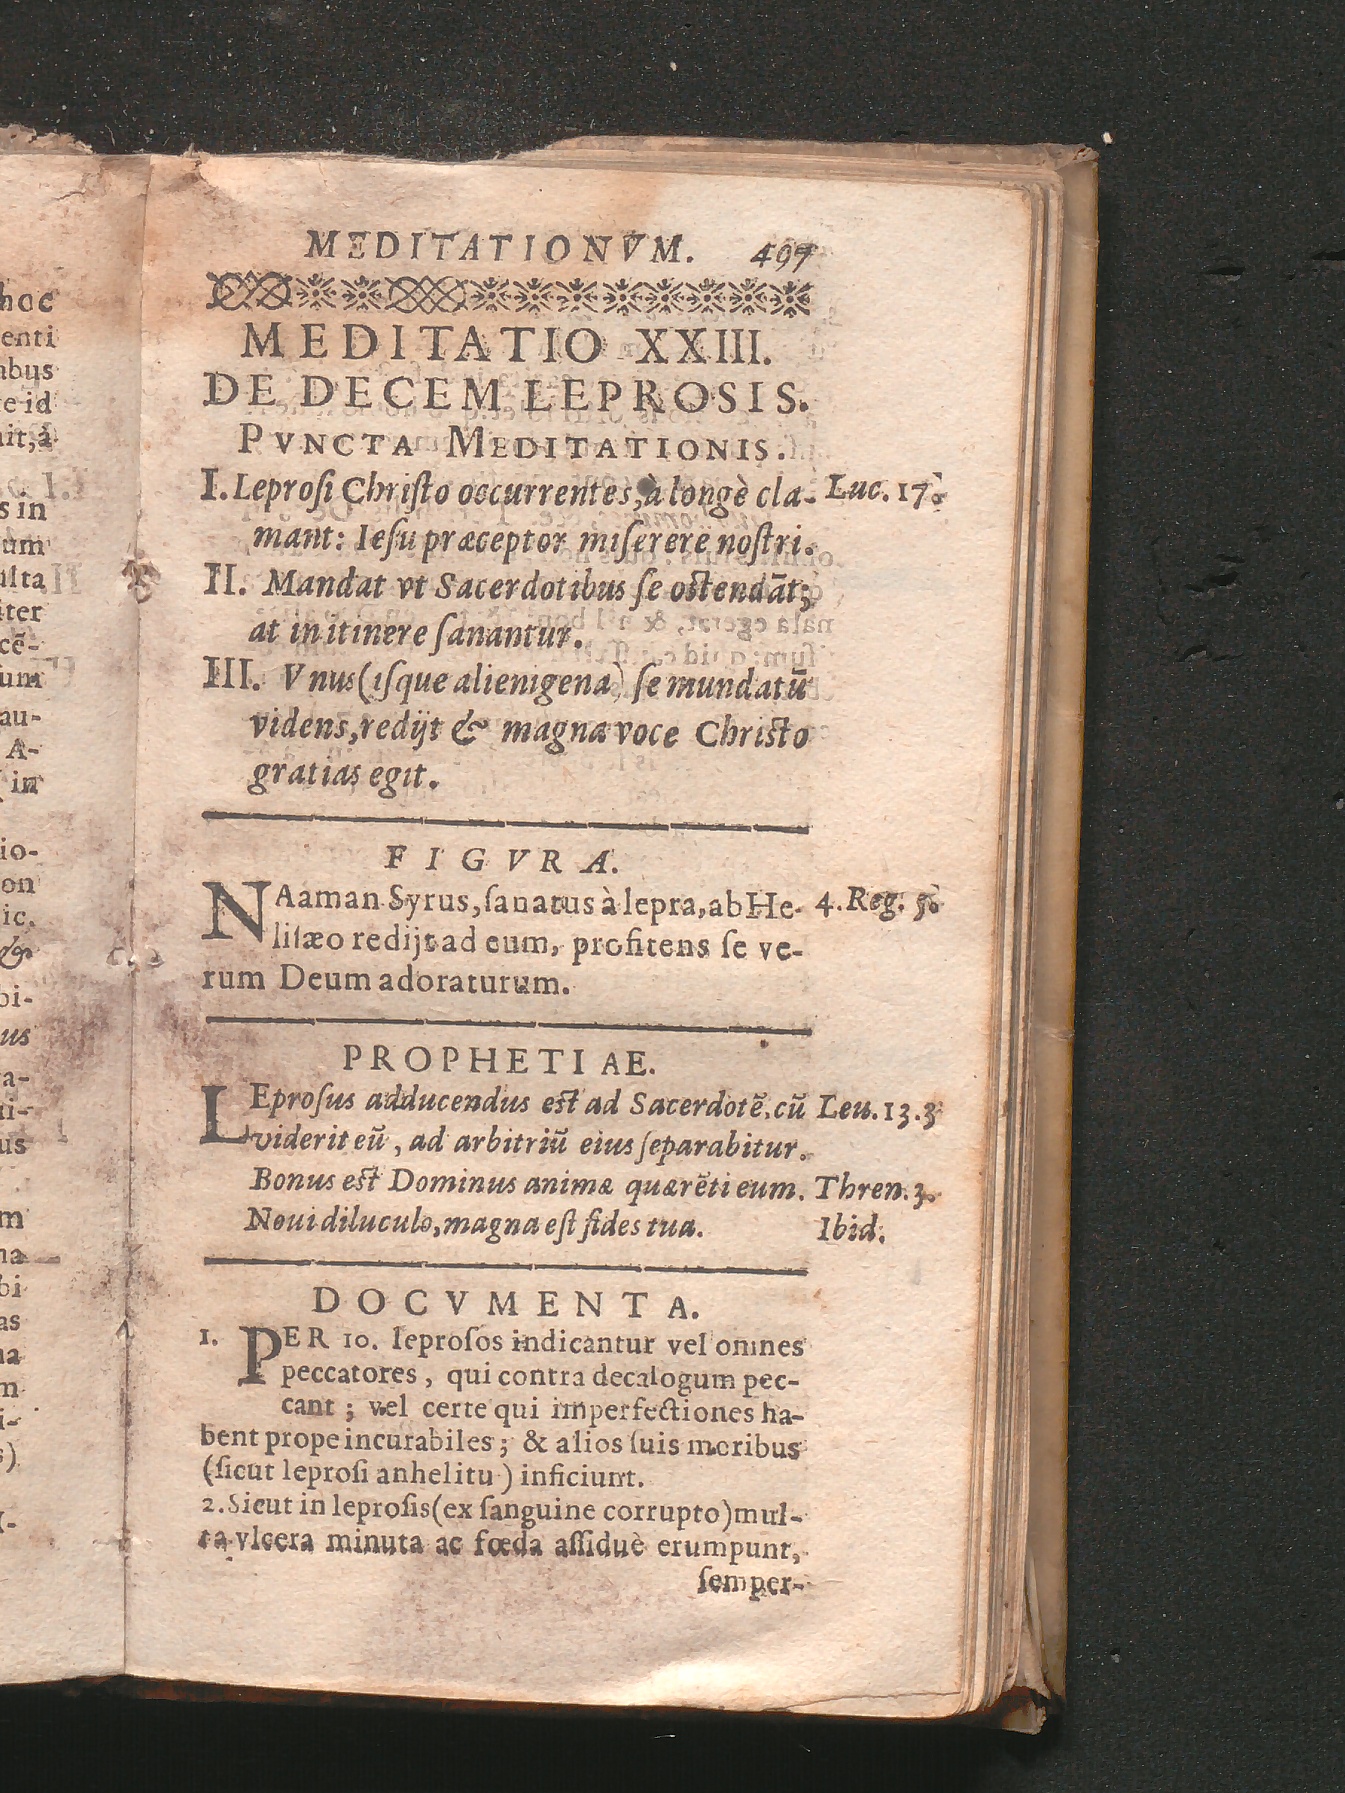 MEDITATIONVM. 497
MEDITATIO XXIII.
DE DECEM LEPROSIS.
PVNCTA MEDITATIONIS.
I. Leproſi Chriſto occurrentes, à longè cla- Luc. 17.
mant: Ieſu præceptor miſerere noſtri.
II. Mandat vt Sacerdotibus ſe oſtendāt;
at in itinere ſanantur.
III. Vnus (iſque alienigena) ſe mundatū
videns, redijt & magna voce Chriſto
gratias egit.
FIGVRA.
NAaman Syrus, ſanatus à lepra, ab He- 4. Reg. 5.
liſæo redijt ad eum, profitens ſe ve-
rum Deum adoraturum.
PROPHETIAE.
LEproſus adducendus eſt ad Sacerdotē, cū Leu. 13. 3
viderit eū, ad arbitriū eius ſeparabitur.
Bonus eſt Dominus animæ quærēti eum. Thren. 3.
Noui diluculo, magna eſt fides tua. Ibid.
DOCVMENTA.
1. PER 10. leproſos indicantur vel omnes
peccatores, qui contra decalogum pec-
cant; vel certe qui imperfectiones ha-
bent prope incurabiles; & alios ſuis moribus
(ſicut leproſi anhelitu) inficiunt.
2. Sicut in leproſis (ex ſanguine corrupto) mul-
ta vlcera minuta ac fœda aſſiduè erumpunt,
ſemper-